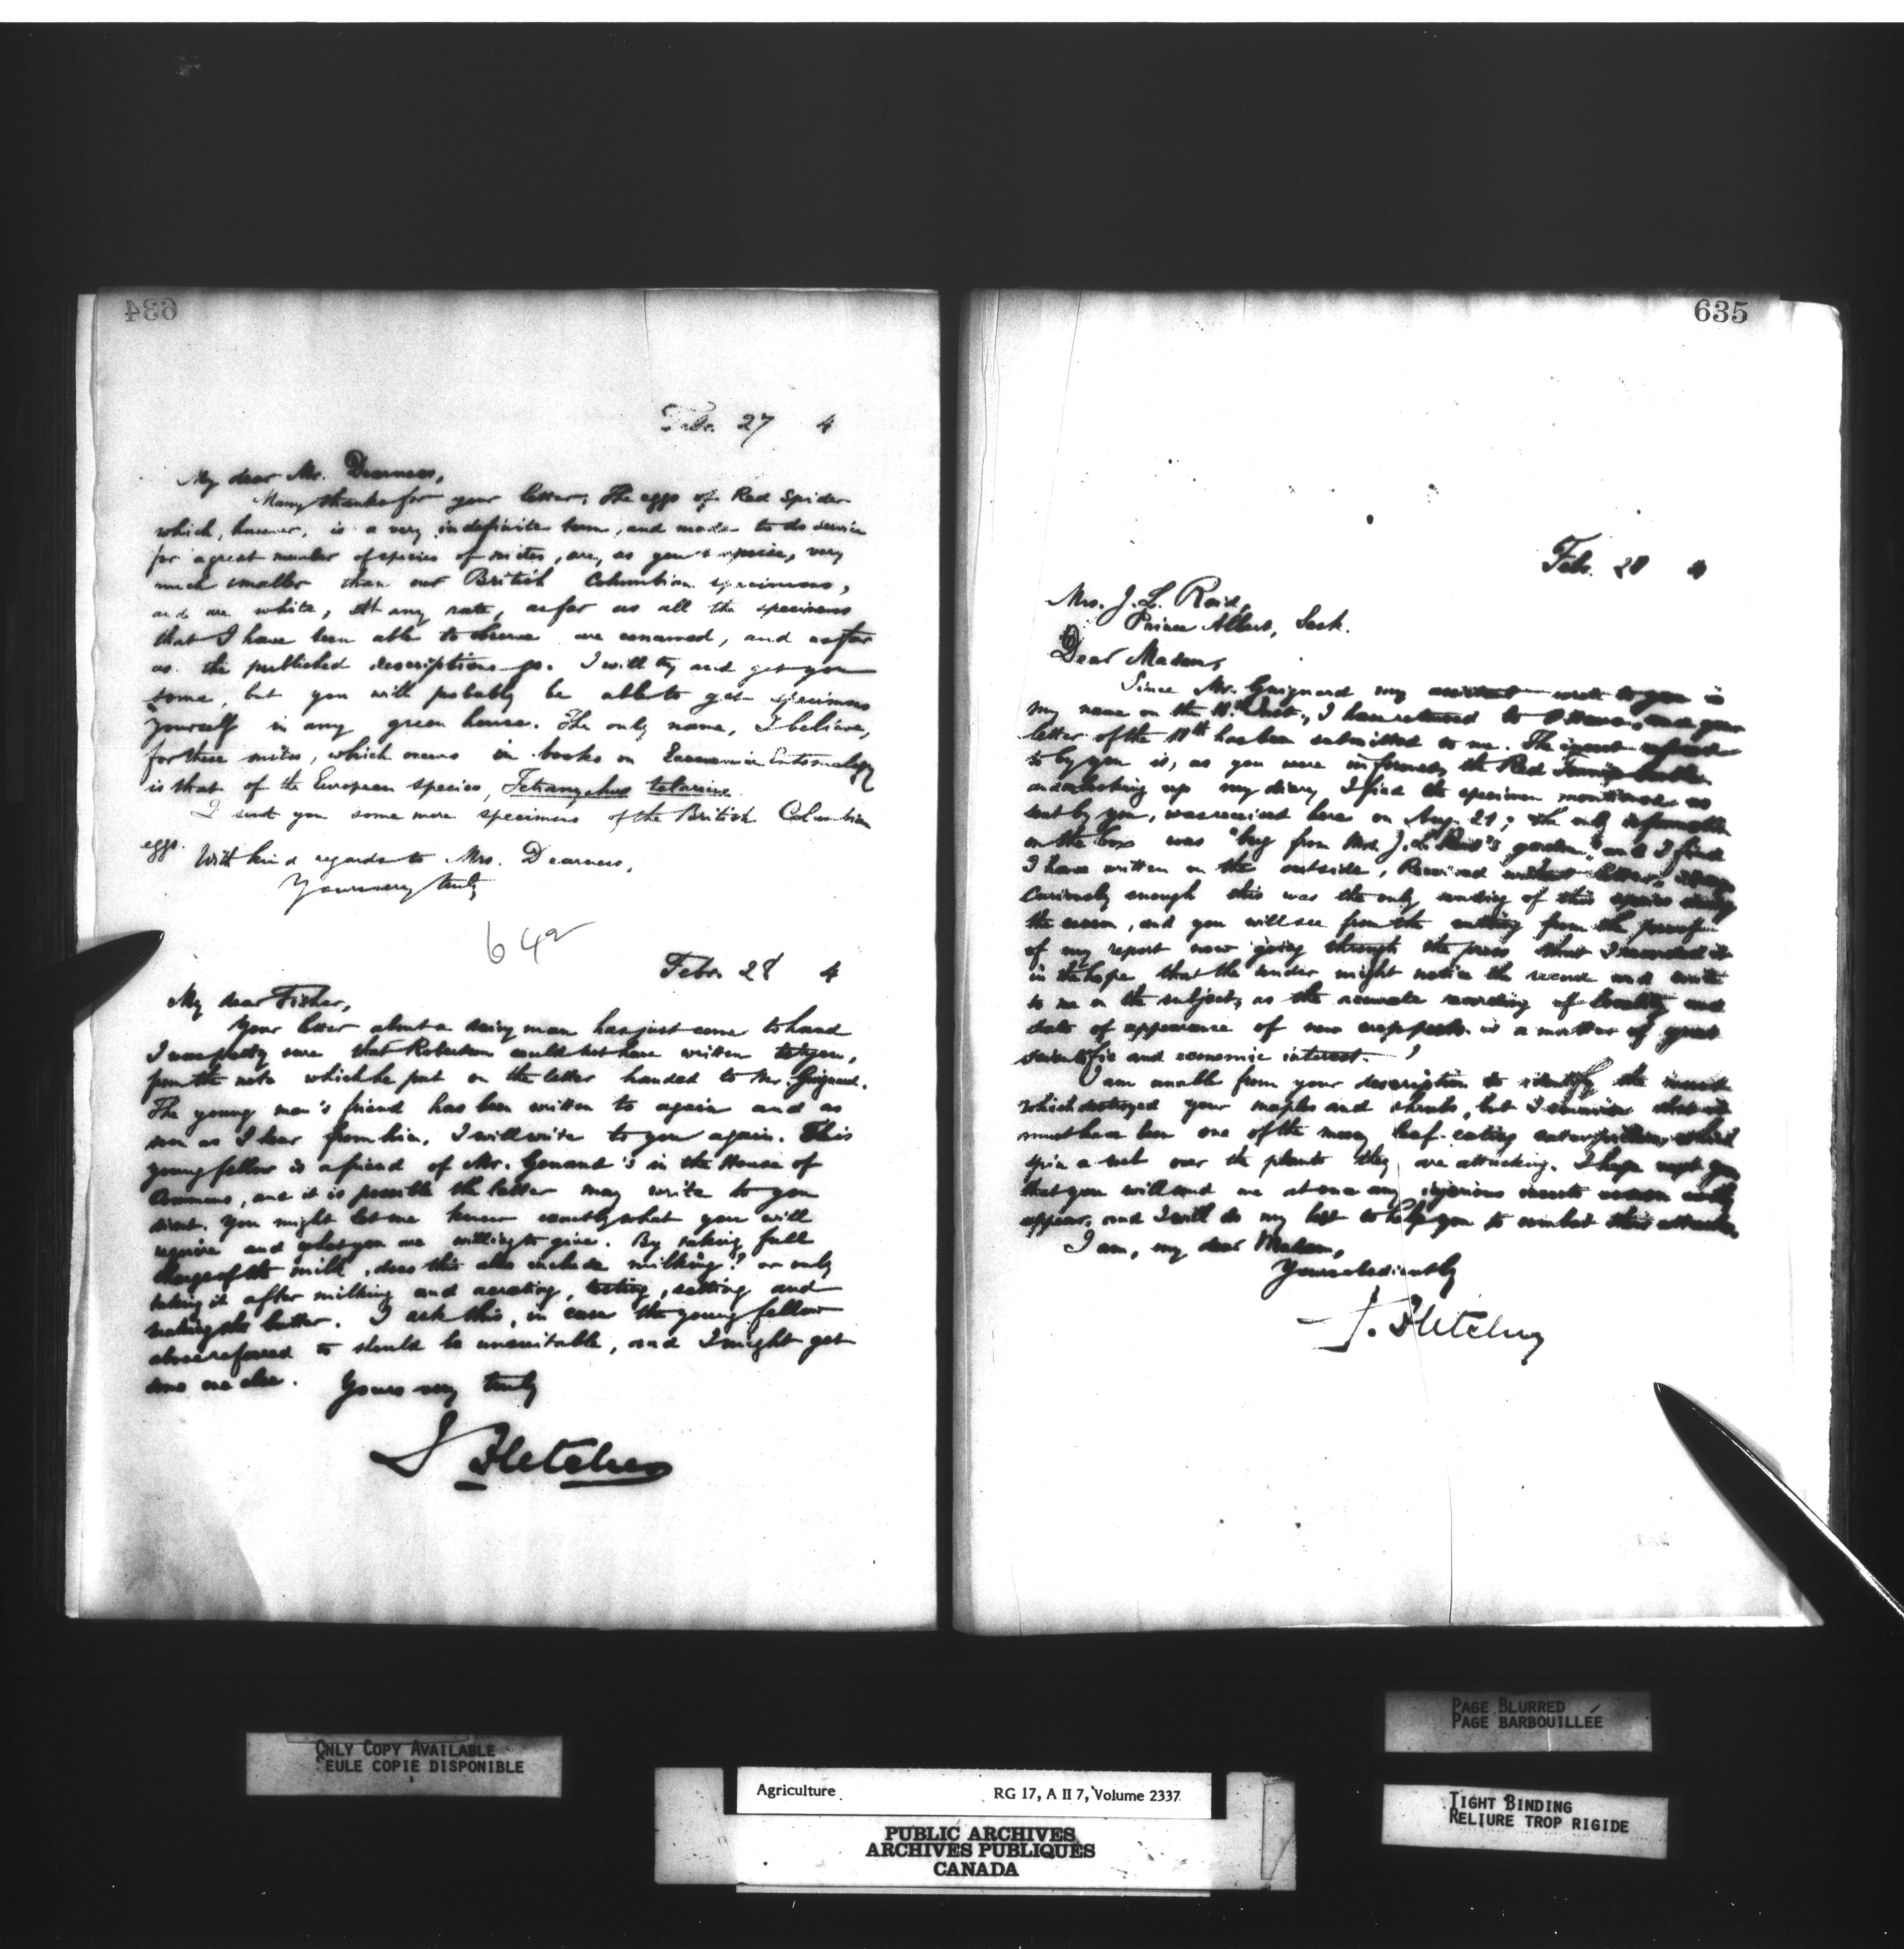 634
Feb. 27 4
My dear Mr. Dearness,
Many thanks for your letter. The eggs of Red Spider
which, however, is a very indefinite term, and made to do service
for a great number of species of mites, are, as you surmise, very
much smaller than our British Columbian specimens,
and are white, At any rate, as far as all the specimens
that I have been able to observe are concerned, and as far
as the published descriptions go. I will try and get you
some, but you will probably be able to get specimens
yourself in any green house. The only name, I believe,
for these mites, which occurs in books on Economic Entomology
is that of the European species, Tetranychus telarius.
I send you some more specimens of the British Columbian
eggs.
With kind regards to Mrs. Dearness,
Yours very truly
642
Febr. 28 4
My dear Fisher,
Your letter about a dairy man has just come to hand
I was pretty sure that Robertson could not have written to you,
from the note which he put on the letter handed to Mr. Guignard.
The young man's friend has been written to again and as
soon as I hear from him, I will write to you again. This
young fellow is a friend of Mr. 's in the House of
Commons, and it is possible the latter may write to you
direct. You might let me know exactly what you will
require and what you are willing to give. By taking full
charge of the milk, does this also include milking? or only
taking it after milking and aerating, testing, setting and
making the butter. I ask this, in case the young fellow
above referred to should be unsuitable, and I might get
some one else. Yours very truly
J Fletcher
635
Feb. 28 4
Mrs. J. L. Reid,
Prince Albert, Sask.
Dear Madam,
Since Mr. Guignard my assistant wrote to you in
my name on the Inst., I have returned to Ottawa, and your
letter of the has been submitted to me. The insect referred
to by you is, as you were informed, the Red Turnip beetle
and on looking up my diary I find the specimen mentioned as
sent by you, was received here on Aug. 21; the only information
on the box was "bug from Mrs. J. L. Reid's garden," and I find
I have written on the outside, Received without letter.
Curiously enough this was the only sending of this species during
the season, and you will see from the cutting from the proof
of my report now going through the press that I recorded it
in the hope that the sender might notice the record and write
to me on the subject, as the accurate recording of locality and
date of appearance of new crop pests is a matter of great
scientific and economic interest.
I am unable from your description to identify the insect
which destroyed your maples and shrubs, but I surmise that it
must have been one of the many leaf-eating caterpillars, which
spin a web over the plants they are attacking. I hope next year
that you will send me at once any injurious insects as soon as they
appear, and I will do my best to help you to combat their attacks.
I am, my dear Madam,
Yours obediently
J. Fletcher
ONLY COPY AVAILABLE
SEULE COPIE DISPONIBLE
PAGE BLURRED
PAGE BARBOUILLÉE
TIGHT BINDING
RELIURE TROP RIGIDE
Agriculture RG 17, A II 7, Volume 2337
PUBLIC ARCHIVES
ARCHIVES PUBLIQUES
CANADA